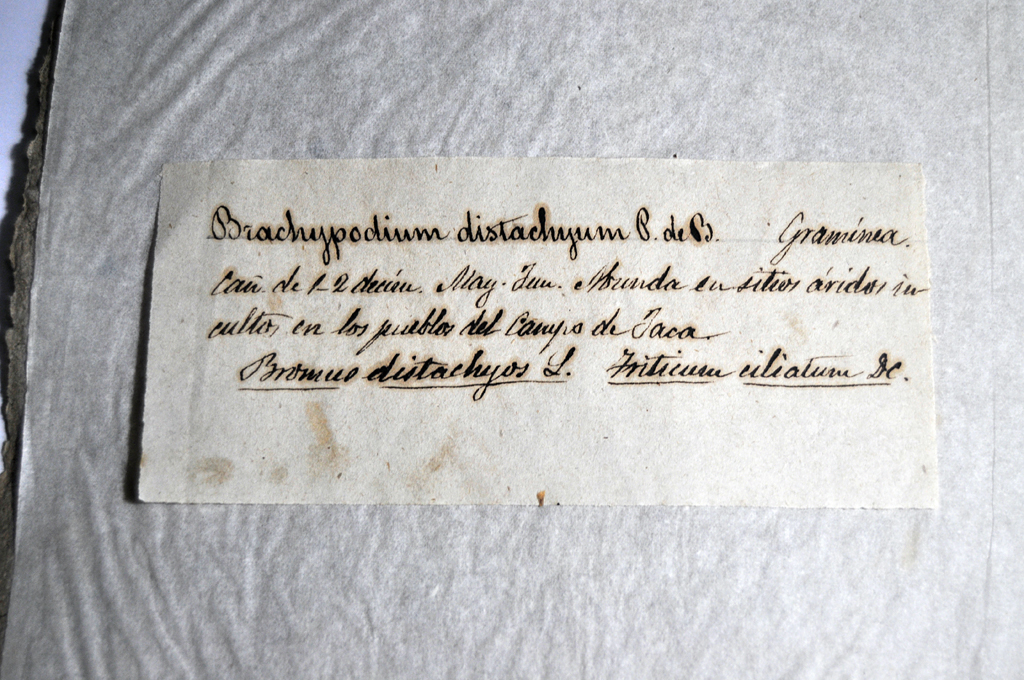 Brachypodium distachyum P. de B. Gramínea.
Cañ. de 1-2 decím. May. Jun. Abunda en sitios áridos in-
cultos en los pueblos del Campo de Jaca.
Bromus distachyos L. Triticum ciliatum DC.